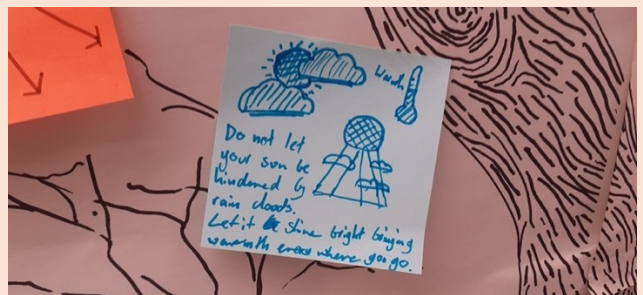 Warmth
Do not let
your sun be
hindered by
rain clouds.
Let it shine bright bringing
warmth every where you go.